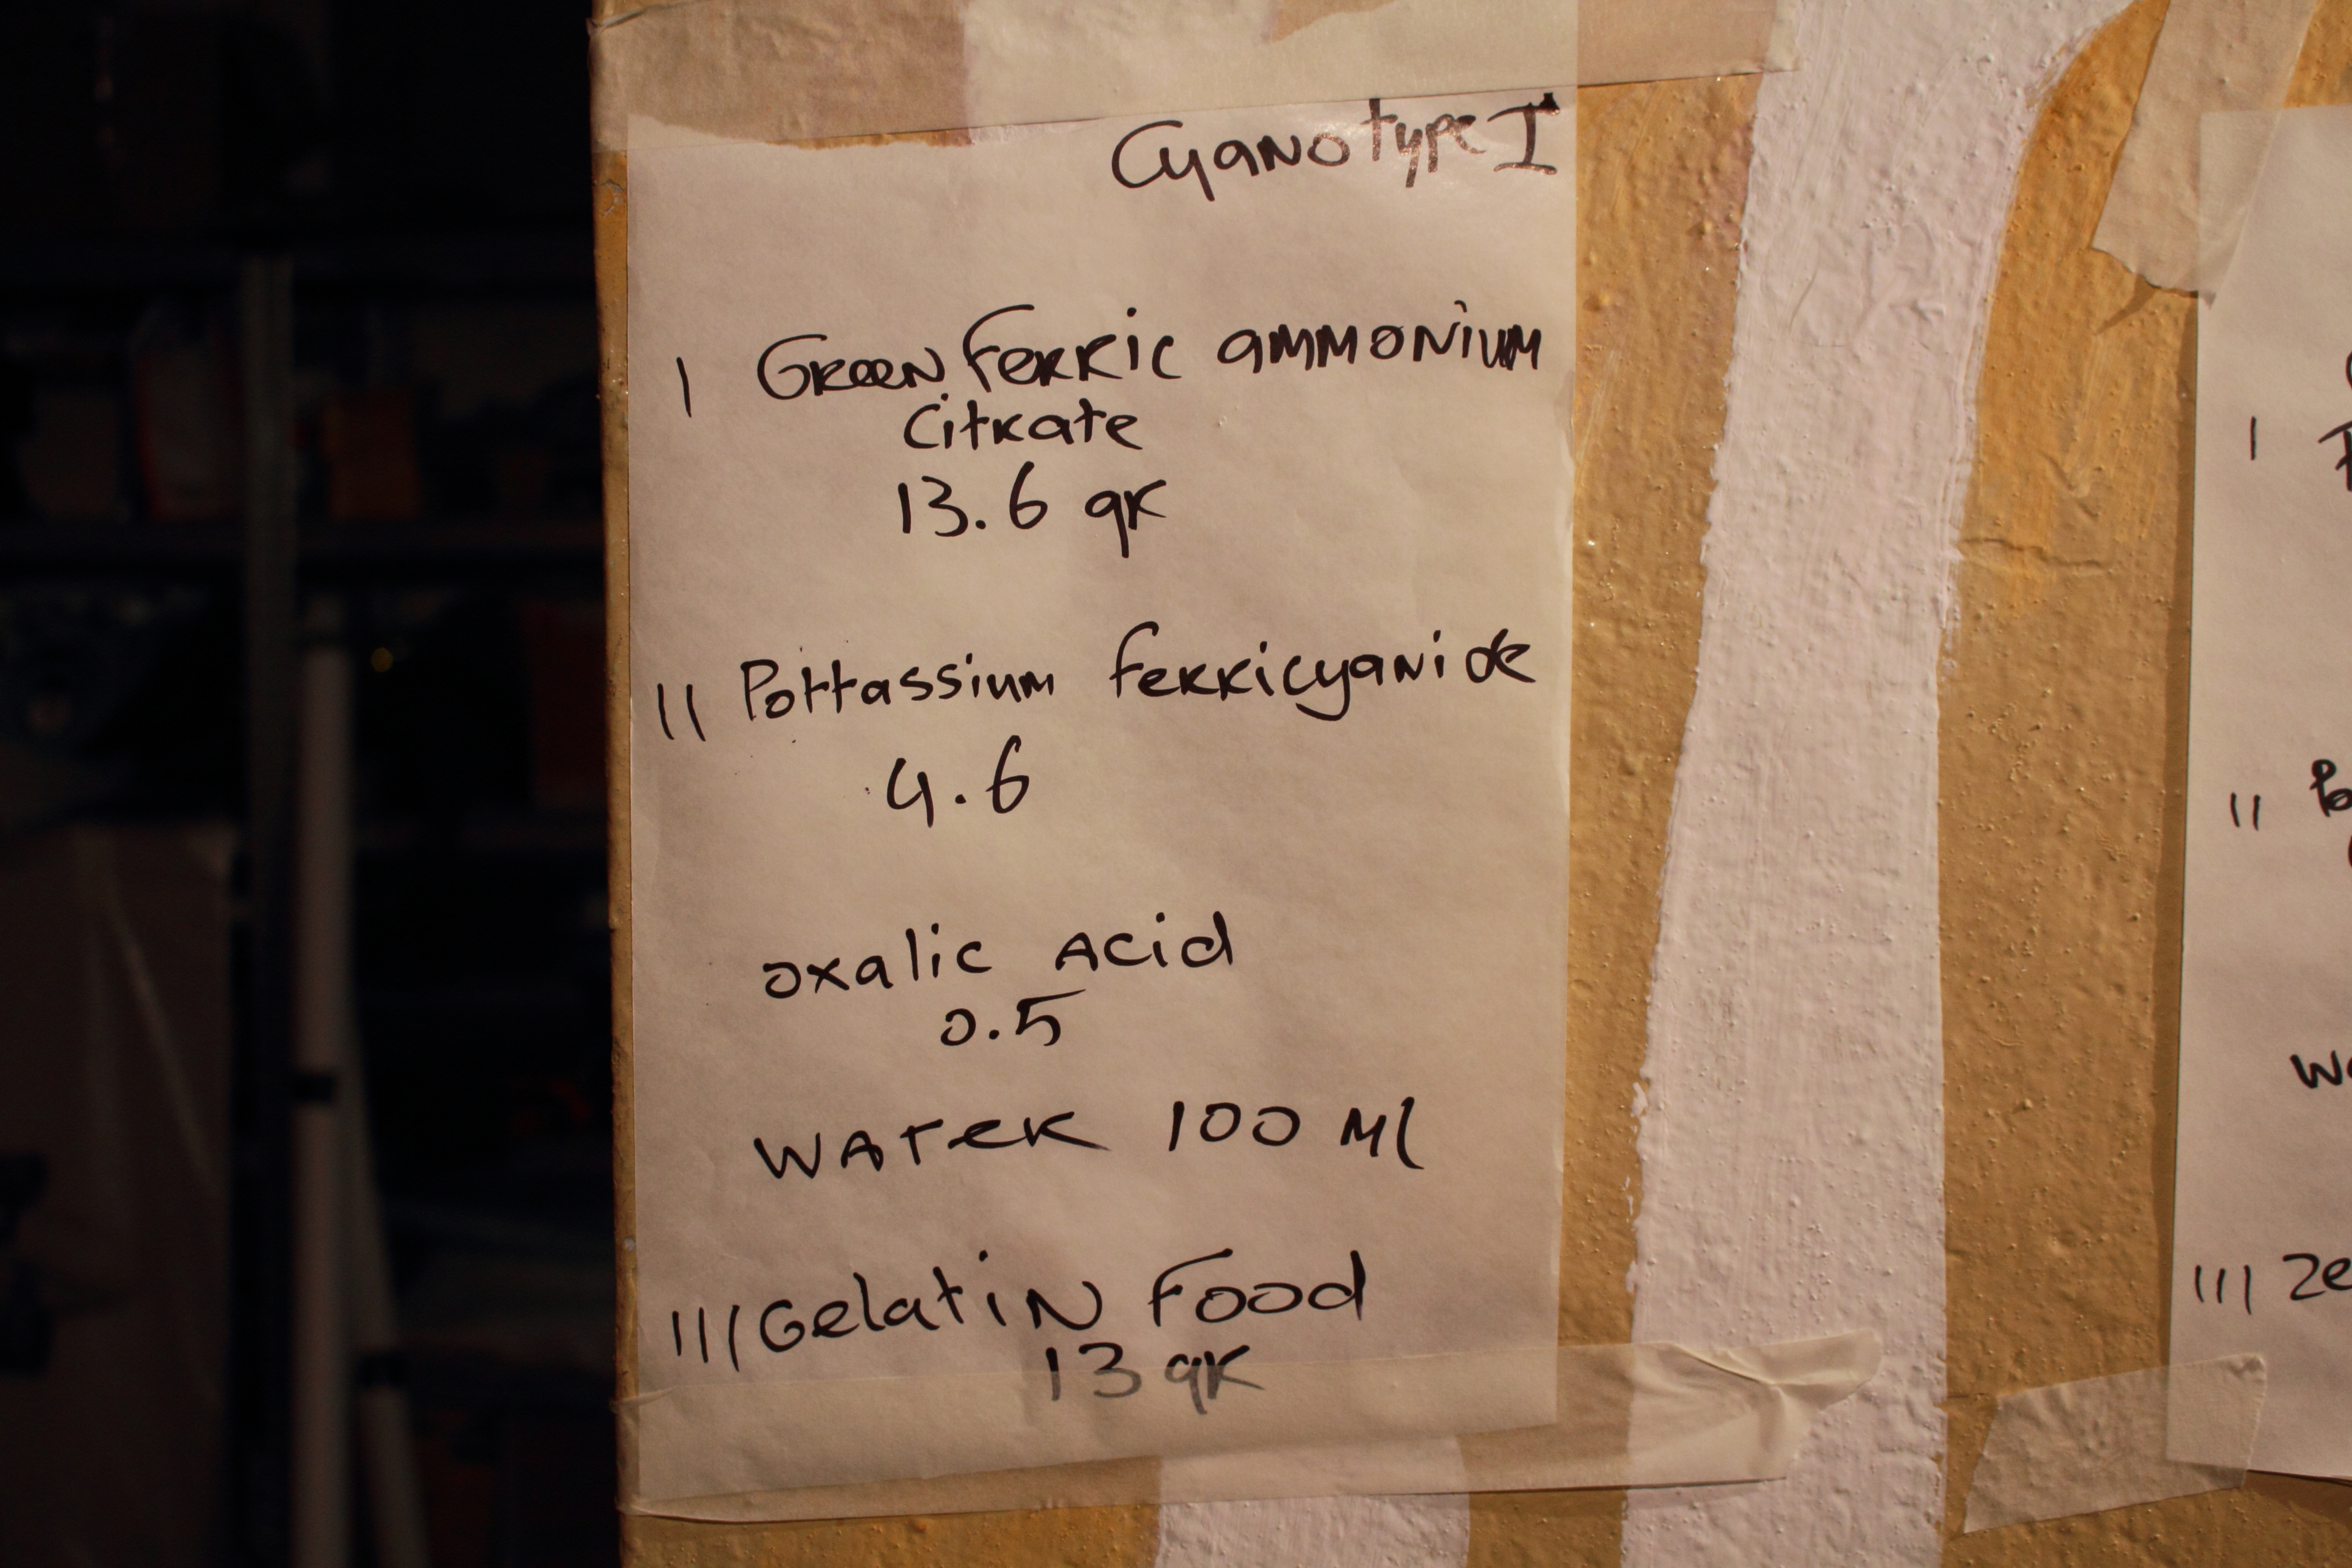 Cyanotype I
I Green Ferric ammonium
Citrate
13.6 gr
II Pottassium ferricyanide
4.6
oxalic Acid
0.5
WATER 100 Ml
III Gelatin Food
13 gr
I
II
III Ze